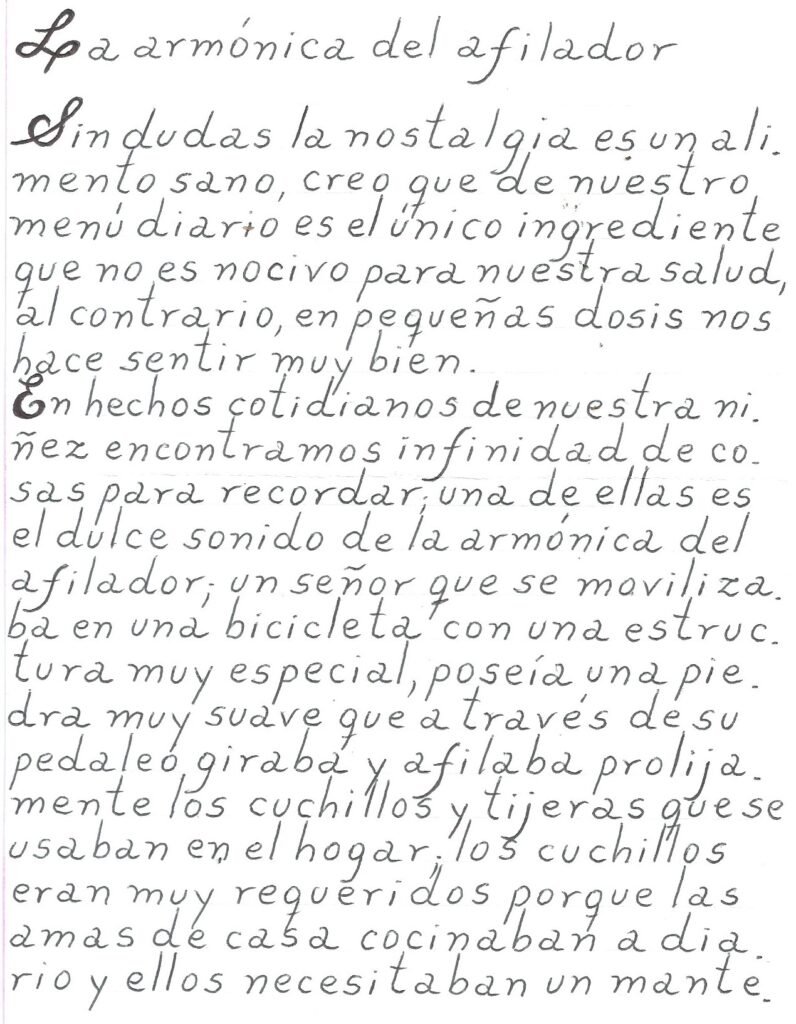 La armónica del afilador
Sin dudas la nostalgia es un ali-
mento sano, creo que de nuestro
menú diario es el único ingrediente
que no es nocivo para nuestra salud,
al contrario, en pequeñas dosis nos
hace sentir muy bien.
En hechos cotidianos de nuestra ni-
ñez encontramos infinidad de co-
sas para recordar; una de ellas es
el dulce sonido de la armónica del
afilador; un señor que se moviliza-
ba en una bicicleta con una estruc-
tura muy especial, poseía una pie-
dra muy suave que a través de su
pedaleo giraba y afilaba prolija-
mente los cuchillos y tijeras que se
usaban en el hogar; los cuchillos
eran muy requeridos porque las
amas de casa cocinaban a dia-
rio y ellos necesitaban un mante-